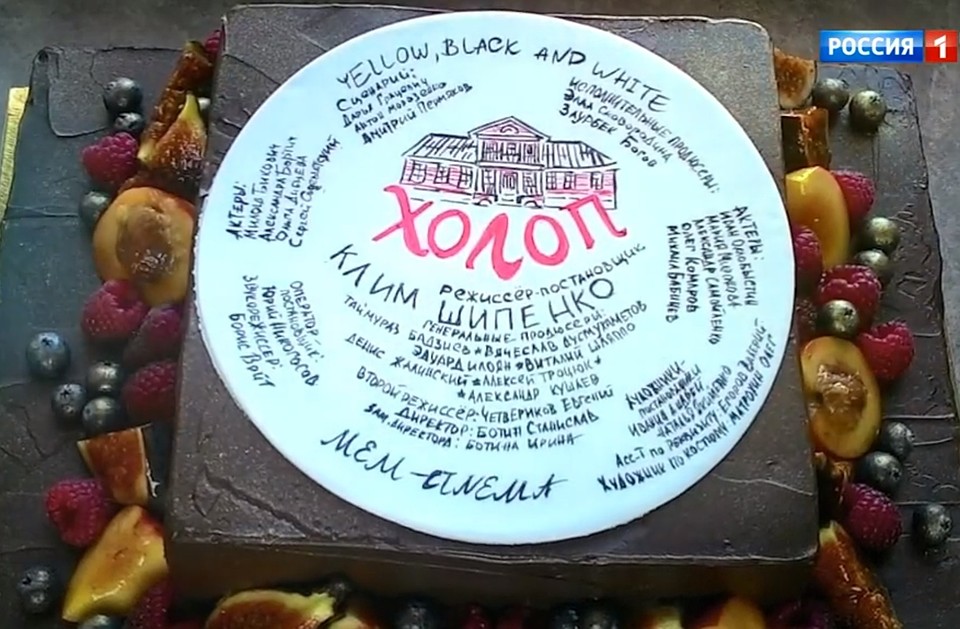 РОССИЯ 1
YELLOW, BLACK AND WHITE
Сценарий:
Дарья Грацевич
Антон Морозенко
Дмитрий Пермяков
Исполнительные продюсеры:
Элла Сковородина
Заурбек Богов
Актеры:
Милош Бикович
Александра Бортич
Ольга Дибцева
Сергей
Актеры:
Иван Охлобыстин
Мария Миронова
Александр Самойленко
Олег Комаров
Михаил Бабичев
ХОЛОП
режиссёр-постановщик
КЛИМ ШИПЕНКО
Генеральные продюсеры:
Таймураз Бадзиев * Вячеслав Дусмухаметов
Эдуард Илоян * Виталий Шляппо
Денис Жалинский * Алексей Троцюк *
* Александр Кушаев
Второй режиссёр: Четвериков Евгений
Директор: Ботин Станислав
Зам. директора: Ботина Ирина
МЕМ-CINEMA
Оператор-
постановщик:
Юрий Никогосов
Звукорежиссер:
Борис Войт
Художники-
постановщики
Асс-т по реквизиту: Егоров Валерий
Художник по костюму Миронин Олег